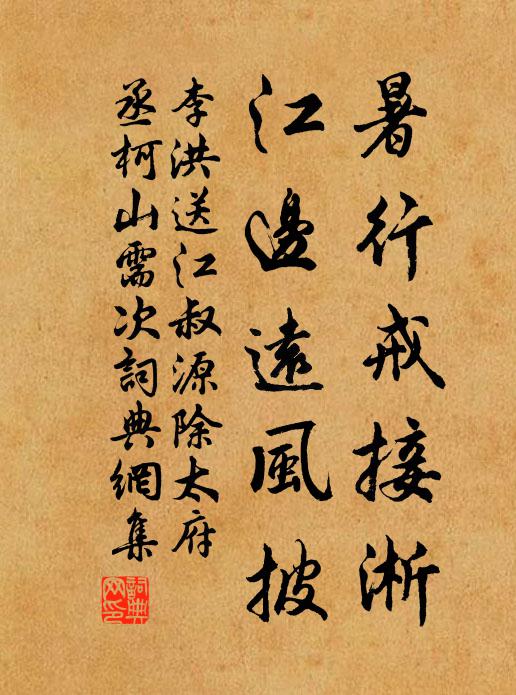 暑行戒接淅
江邊遠風披
李洪送江叔源除太府
丞柯山需次詞典網集
詞典網印